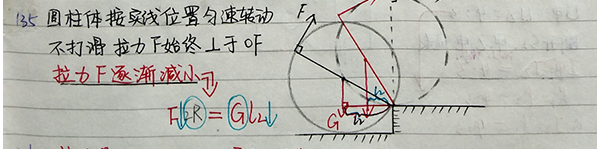 135 圆柱体按实线位置匀速转动
不打滑 拉力F始终⊥于OF
拉力F逐渐减小
F↓2R = GL₂↓
F
G
L₂